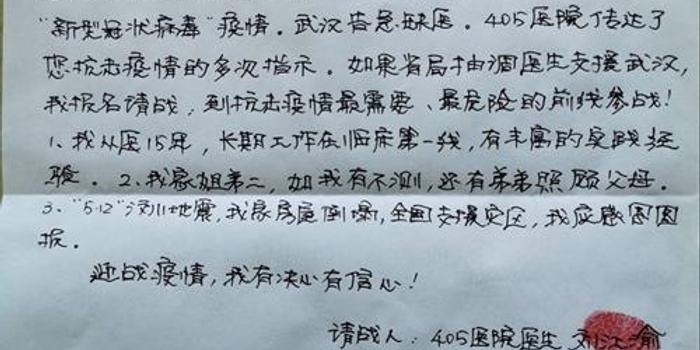 “新型冠状病毒”疫情。武汉告急缺医。405医院传达了
您抗击疫情的多次指示。如果省局抽调医生支援武汉，
我报名请战，到抗击疫情最需要、最危险的前线参战！
1、我从医15年，长期工作在临床第一线，有丰富的实践经
验。2、我家姐弟二，如我有不测，还有弟弟照顾父母。
3、“5·12”汶川地震，我家房屋倒塌，全国支援灾区，我应感恩图
报。
迎战疫情，我有决心有信心！
请战人：405医院医生 刘江渝